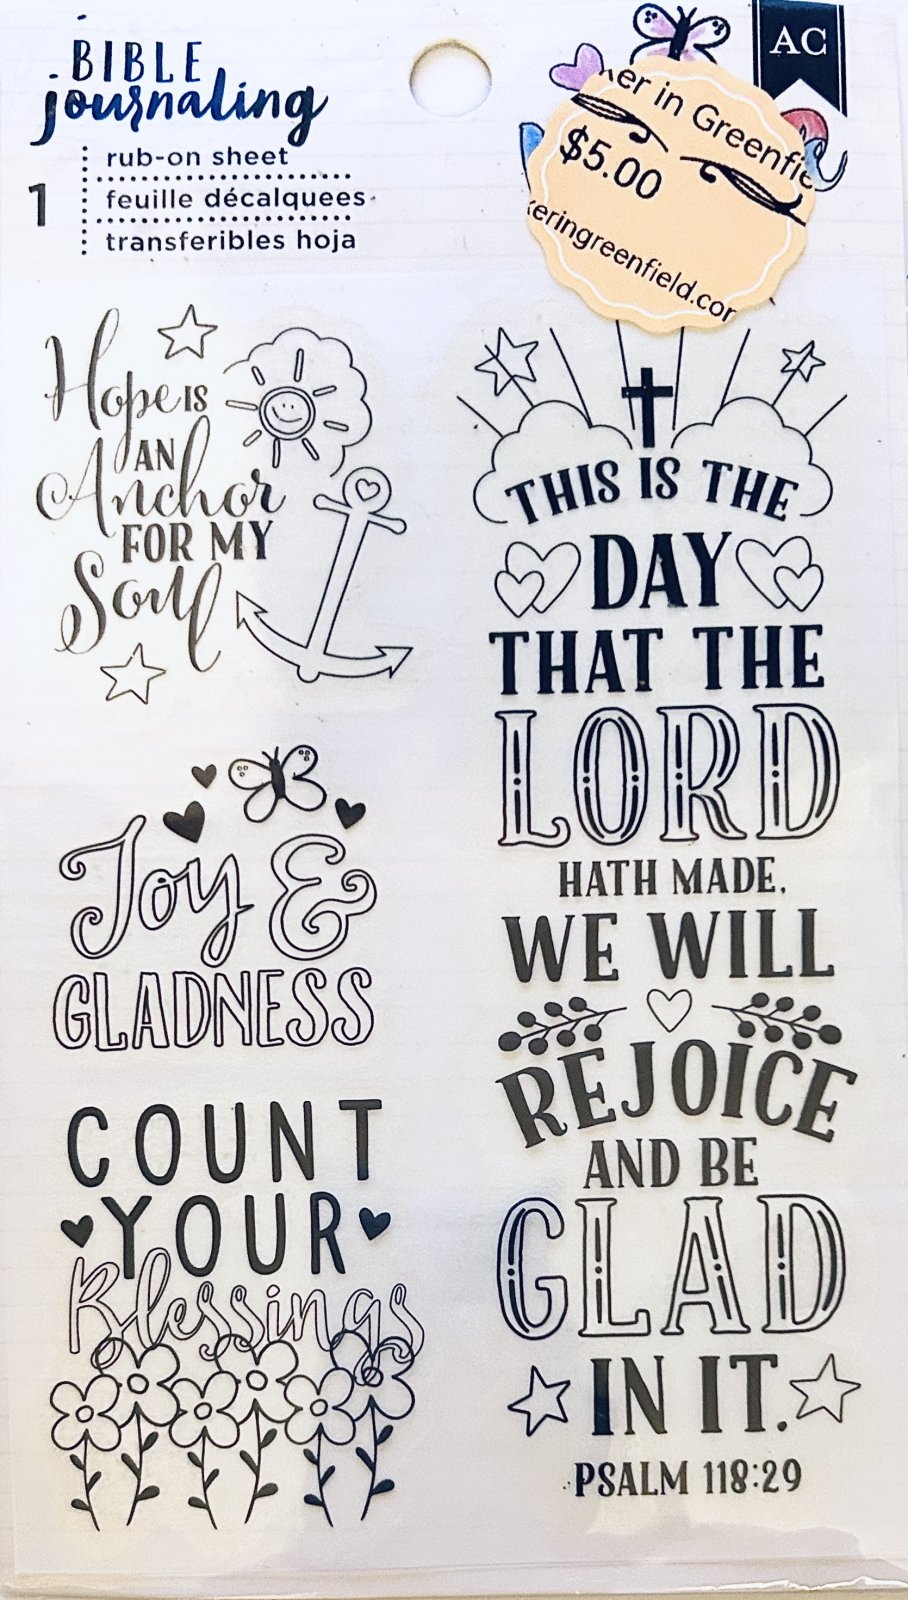 BIBLE
journaling
1
rub-on sheet
feuille décalquees
transferibles hoja
AC
in Greenfie
$5.00
eringreenfield.com
Hope IS
AN
Anchor
FOR MY
Soul
Joy &
GLADNESS
COUNT
YOUR
Blessings
THIS IS THE
DAY
THAT THE
LORD
HATH MADE.
WE WILL
REJOICE
AND BE
GLAD
IN IT.
PSALM 118:29